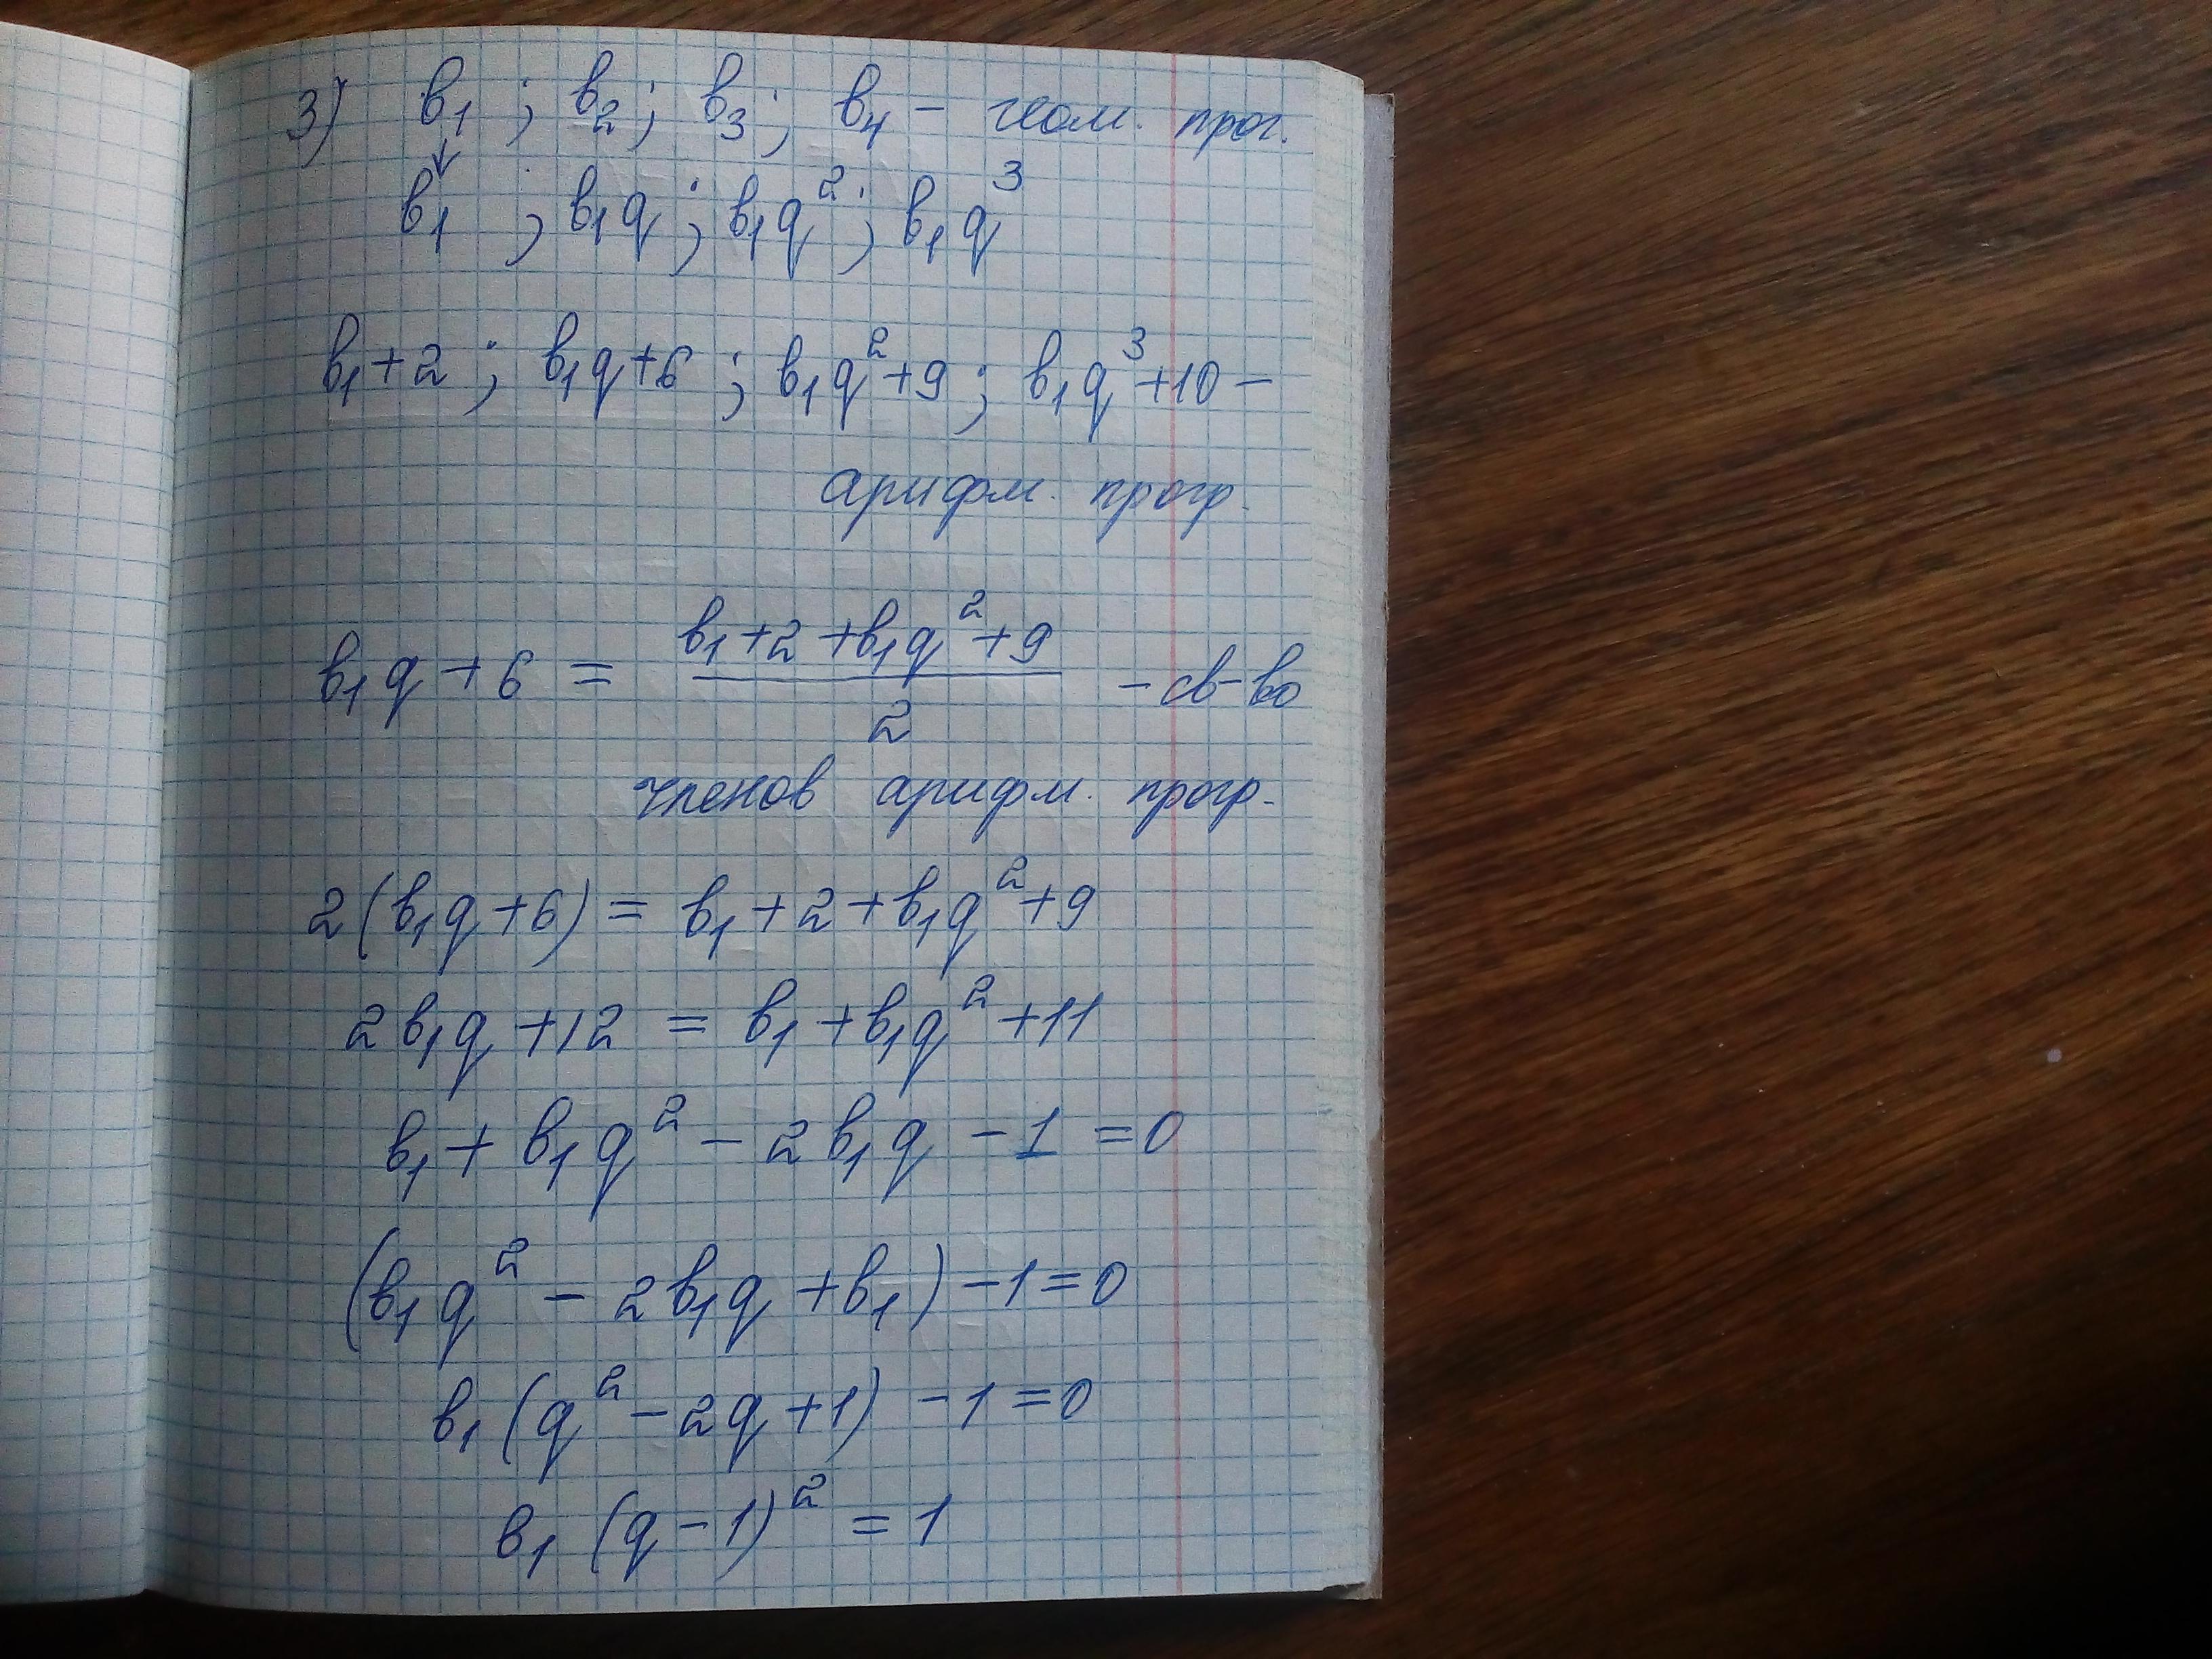 3) в₁ ; в₂ ; в₃ ; в₄ – геом. прог.
↓
в₁ ; в₁q ; в₁q² ; в₁q³
в₁+2 ; в₁q+6 ; в₁q²+9 ; в₁q³+10 –
арифм. прогр.
в₁q + 6 = (в₁+2+в₁q²+9)/2 – св-во
членов арифм. прогр.
2(в₁q+6) = в₁+2+в₁q²+9
2в₁q+12 = в₁+в₁q²+11
в₁ + в₁q² – 2в₁q – 1 = 0
(в₁q² – 2в₁q + в₁) – 1 = 0
в₁(q² – 2q + 1) – 1 = 0
в₁(q – 1)² = 1